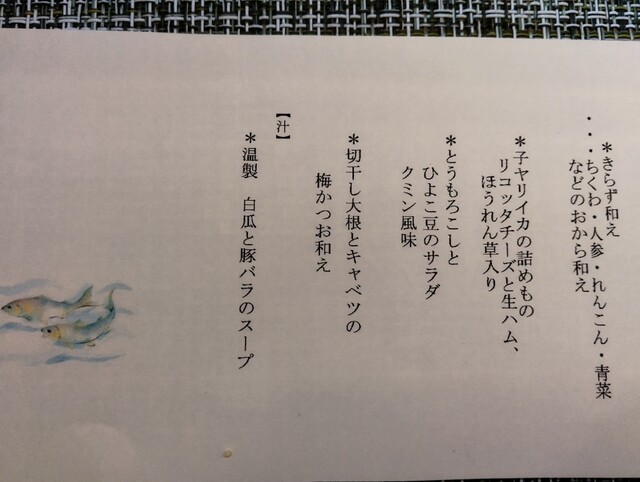 ＊きらず和え
・・・ちくわ・人参・れんこん・青菜
などのおから和え
＊子ヤリイカの詰めもの
リコッタチーズと生ハム、
ほうれん草入り
＊とうもろこしと
ひよこ豆のサラダ
クミン風味
＊切干し大根とキャベツの
梅かつお和え
【汁】
＊温製　白瓜と豚バラのスープ